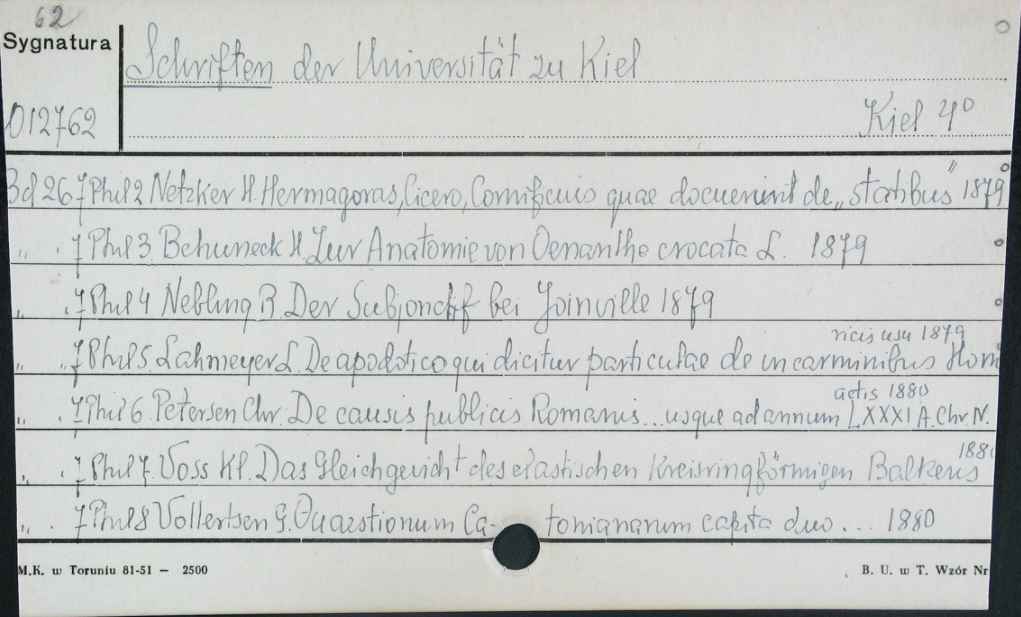 62
Sygnatura
Schriften der Universität zu Kiel
012762
Kiel 4°
Bd 26 7 Phil 2 Netzker H. Hermagoras, Cicero, Cornificius quae docuerint de „statibus" 1879
„ . 7 Phil 3 Behuneck H. Zur Anatomie von Oenanthe crocata L. 1879
„ . 7 Phil 4 Nebling R. Der Subjonctif bei Joinville 1879
„ „ 7 Phil 5 Lahmeyer L. De apodotico qui dicitur particulae de in carminibus Home
ricis usu 1879
„ . 7 Phil 6 Petersen Chr. De causis publicis Romanis... usque ad annum LXXXI A. Chr. N.
actis 1880
„ . 7 Phil 7. Voss Kl. Das Gleichgewicht des elastischen Kreisringförmigen Balkens
1880
„ . 7 Phil 8 Vollertsen G. Quaestionum Ca- tonianarum capita duo... 1880
M.K. w Toruniu 81-51 — 2500
B. U. w T. Wzór Nr